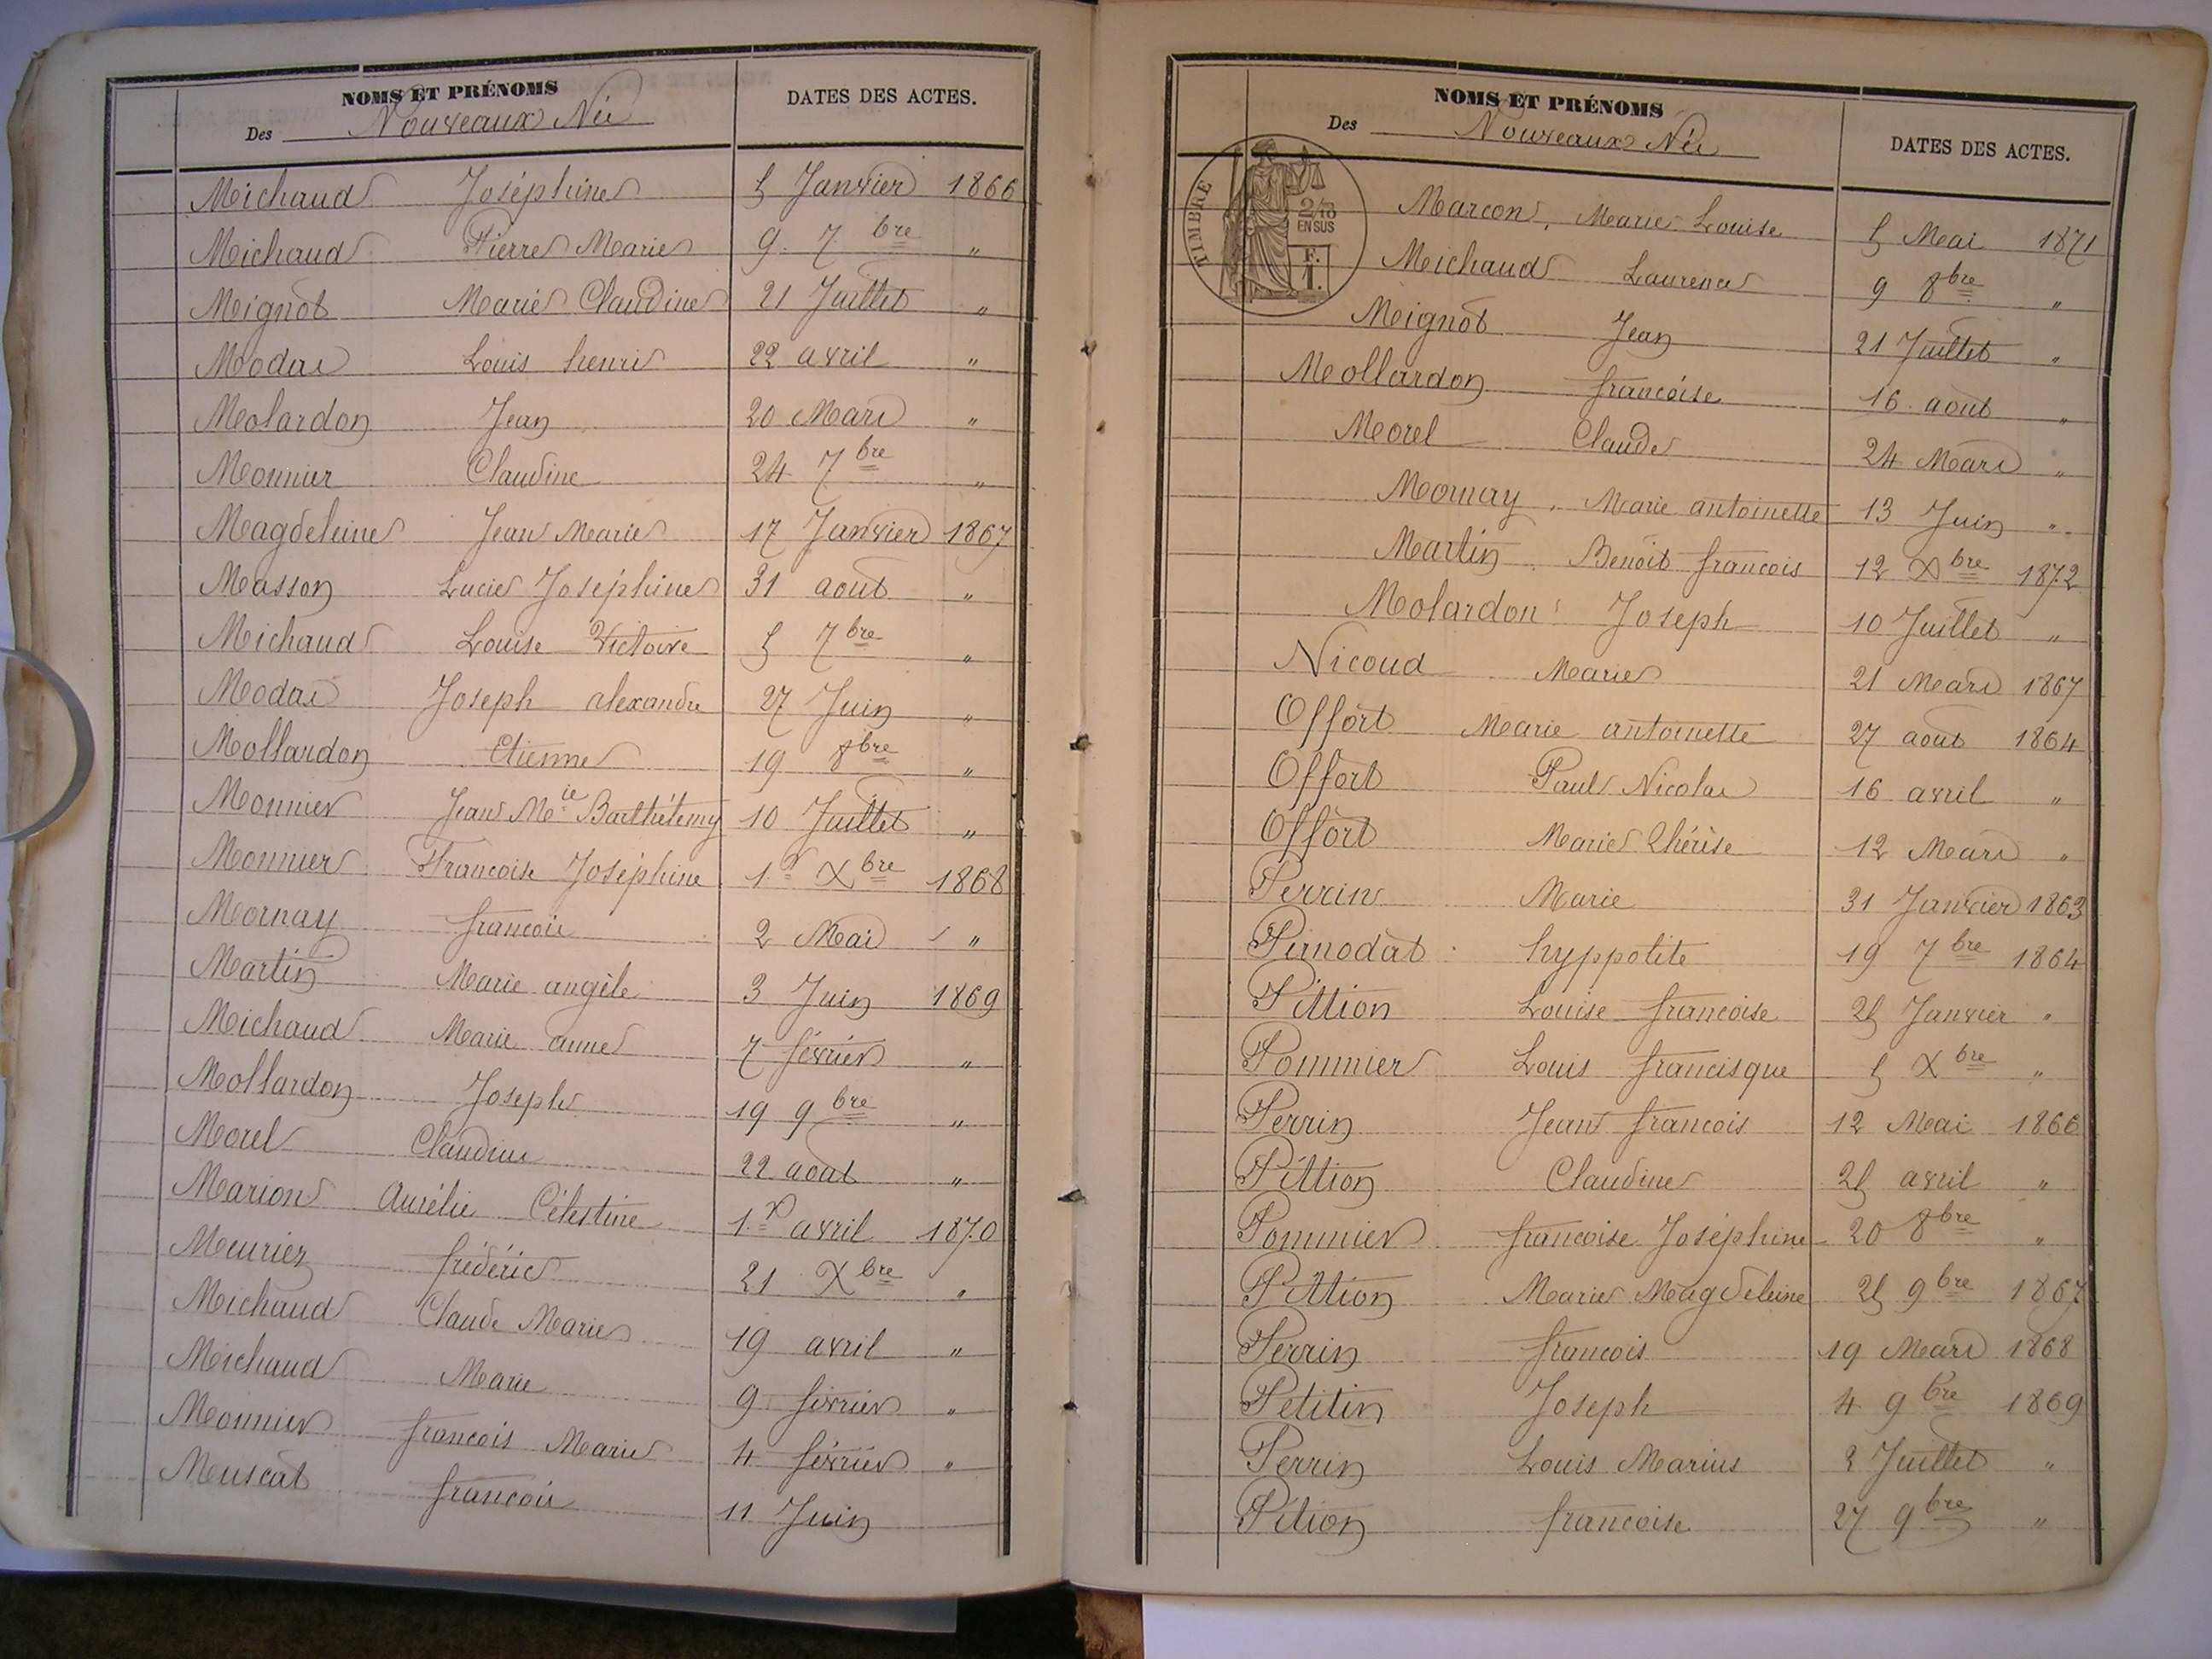 NOMS ET PRÉNOMS
Des Nouveaux Nés
DATES DES ACTES.
Michaud Joséphine 5 Janvier 1866
Michaud Pierre Marie 9 7bre "
Mignot Marie Claudine 21 Juillet "
Modas Louis henri 22 avril "
Molardon Jean 20 Mars "
Monnier Claudine 24 7bre "
Magdeleine Jean Marie 17 Janvier 1867
Masson Lucie Joséphine 31 août "
Michaud Louise Victoire 5 7bre "
Modas Joseph alexandre 27 Juin "
Mollardon Etienne 19 8bre "
Monnier Jean Mie Barthélemy 10 Juillet "
Monnier Francoise Joséphine 1er Xbre 1868
Mornay francois 2 Mai "
Martin Marie angèle 3 Juin 1869
Michaud Marie anne 7 février "
Mollardon Joseph 19 9bre "
Morel Claudine 22 août "
Marion Aurélie Célestine 1er avril 1870
Meuriez frédéric 21 Xbre "
Michaud Claude Marie 19 avril "
Michaud Marie 9 février "
Monnier francois Marie 4 février "
Muscat francois 11 Juin
NOMS ET PRÉNOMS
Des Nouveaux Nés
DATES DES ACTES.
TIMBRE
2/10
EN SUS
F.
1.
Marcon, Marie Louise 5 Mai 1871
Michaud Laurence 9 8bre "
Mignot Jean 21 Juillet "
Mollardon francoise 16 août "
Morel Claude 24 Mars "
Mornay Marie antoinette 13 Juin "
Martin Benoit francois 12 Xbre 1872
Molardon Joseph 10 Juillet "
Nicoud Marie 21 Mars 1867
Offort Marie antoinette 27 août 1864
Offort Paul Nicolas 16 avril "
Offort Marie Thérèse 12 Mars "
Perrin Marie 31 Janvier 1863
Pernodat hyppolite 19 7bre 1864
Pittion Louise francoise 25 Janvier "
Pommier Louis francisque 5 Xbre "
Perrin Jean francois 12 Mai 1866
Pittion Claudine 25 avril "
Pommier francoise Joséphine 20 8bre "
Pittion Marie Magdeleine 25 9bre 1867
Perrin francois 19 Mars 1868
Petitin Joseph 4 9bre 1869
Perrin Louis Marius 2 Juillet "
Pition francoise 27 9bre "